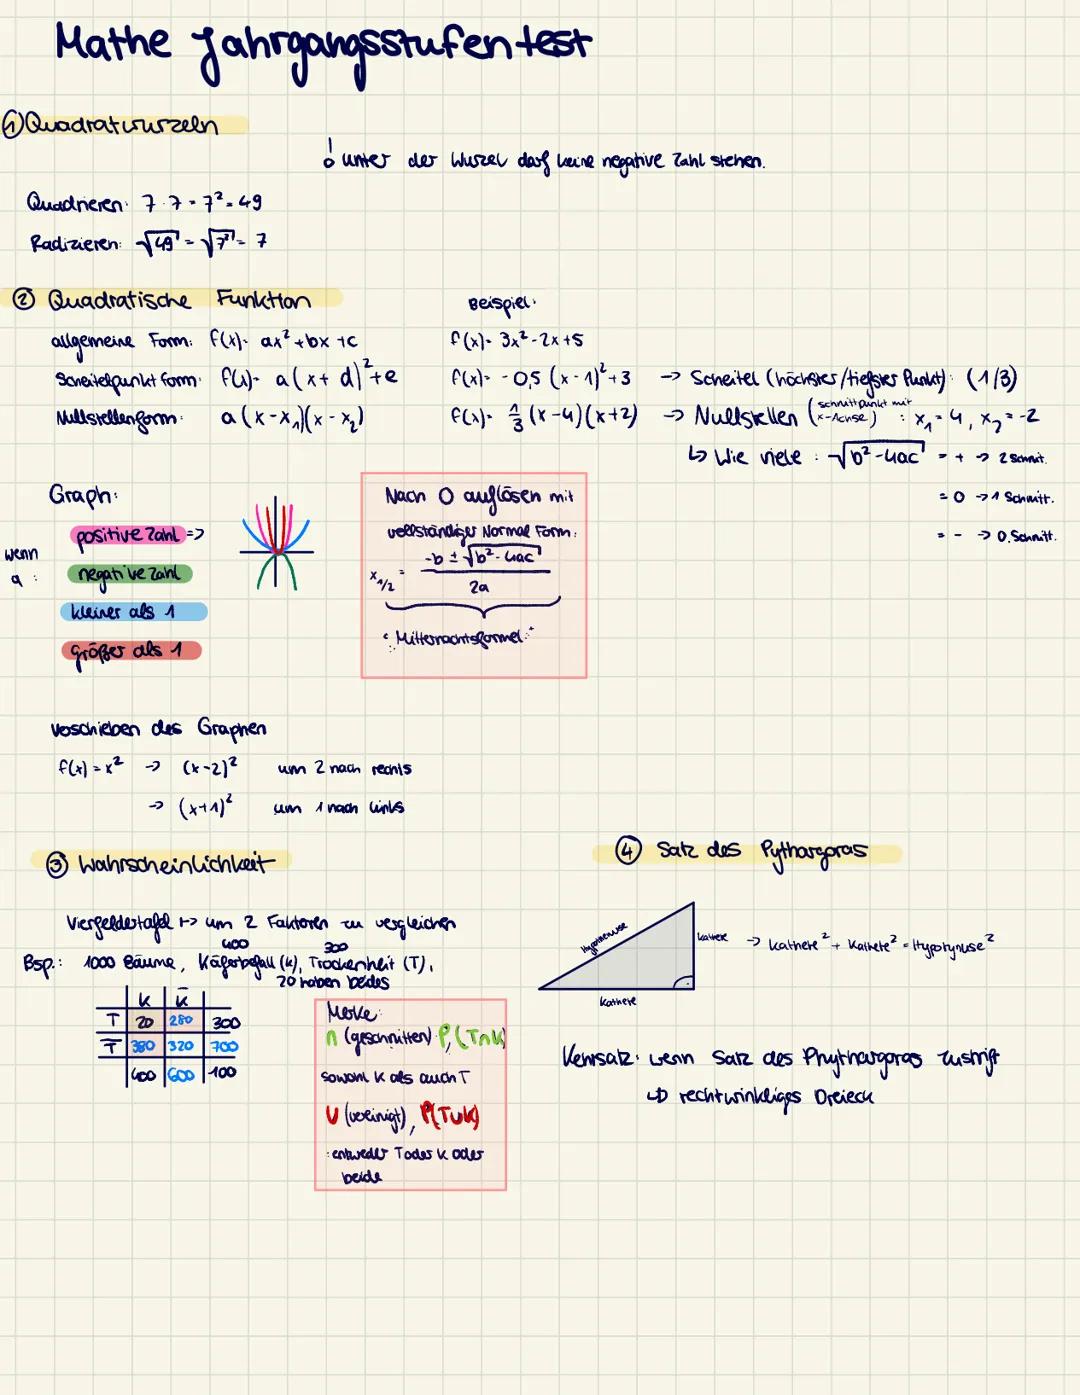 Mathe Jahrgangsstufentest
① Quadratwurzeln
! unter der Wurzel darf keine negative Zahl stehen.
Quadrieren: 7 · 7 = 7² = 49
Radizieren: √49 = √7² = 7
② Quadratische Funktion
Beispiel:
allgemeine Form: f(x) = ax² + bx + c
f(x) = 3x² - 2x + 5
Scheitelpunkt form: f(x) = a(x + d)² + e
f(x) = -0,5 (x - 1)² + 3 → Scheitel (höchster/tiefster Punkt): (1/3)
Nullstellenform: a(x - x₁)(x - x₂)
f(x) = 1/3 (x - 4)(x + 2) → Nullstellen (schnittpunkt mit x-Achse) : x₁ = 4, x₂ = -2
↳ Wie viele : √b² - 4ac = + → 2 Schnit.
= 0 → 1 Schnitt.
= - → 0. Schnitt.
Graph:
wenn a :
positive Zahl =>
negative Zahl
kleiner als 1
größer als 1
Nach 0 auflösen mit
vollständiger Normal Form:
x₁/₂ = -b ± √b² - 4ac / 2a
"Mitternachtsformel"
Verschieben des Graphen
f(x) = x² → (x - 2)² um 2 nach rechts
→ (x + 1)² um 1 nach links
③ Wahrscheinlichkeit
Vierfeldertafel ↦ um 2 Faktoren zu vergleichen
400 300
Bsp.: 1000 Bäume, Käferbefall (K), Trockenheit (T),
20 haben beides
K K̅
T 20 280 300
T̅ 380 320 700
400 600 100
Merke:
∩ (geschnitten) P(T∩K)
sowohl K als auch T
∪ (vereinigt), P(T∪K)
: entweder T oder K oder
beide
④ Satz des Pythargoras
Hypothenuse
Kathete
Kathete
→ Kathete² + Kathete² = Hypotynuse²
Kehrsatz: wenn Satz des Phythargoras zustrift
↳ rechtwinkliges Dreieck